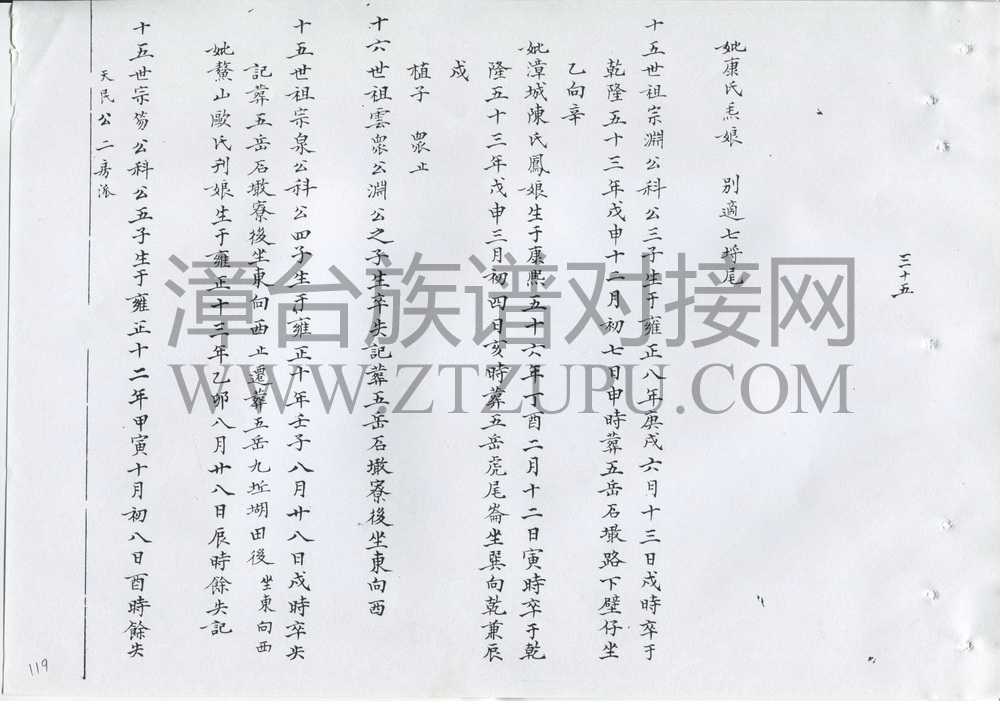 三十五
妣康氏㤙娘 别適七埓尾
十五世祖宗淵公科公三子生于雍正八年庚戌六月十三日戌時卒于
乾隆五十三年戊申十二月初七日申時葬五岳石墩路下壁仔坐
乙向辛
妣漳城陳氏鳳娘生于康熙五十六年丁酉二月十二日寅時卒于乾
隆五十三年戊申三月初四日亥時葬五岳虎尾崙坐巽向乾兼辰
戍
植子 眾止
十六世祖雲眾公淵公之子生卒失記葬五岳石墩寮後坐東向西
十五世祖宗泉公科公四子生于雍正十年壬子八月廿八日戍時卒失
記葬五岳石墩寮後坐東向西止遷葬五岳九坵湖田後坐東向西
妣鰲山歐氏刋娘生于雍正十三年乙卯八月廿八日辰時餘失記
十五世宗篛公科公五子生于雍正十二年甲寅十月初八日酉時餘失
天民公二房派
119
漳台族谱对接网
WWW.ZTZUPU.COM